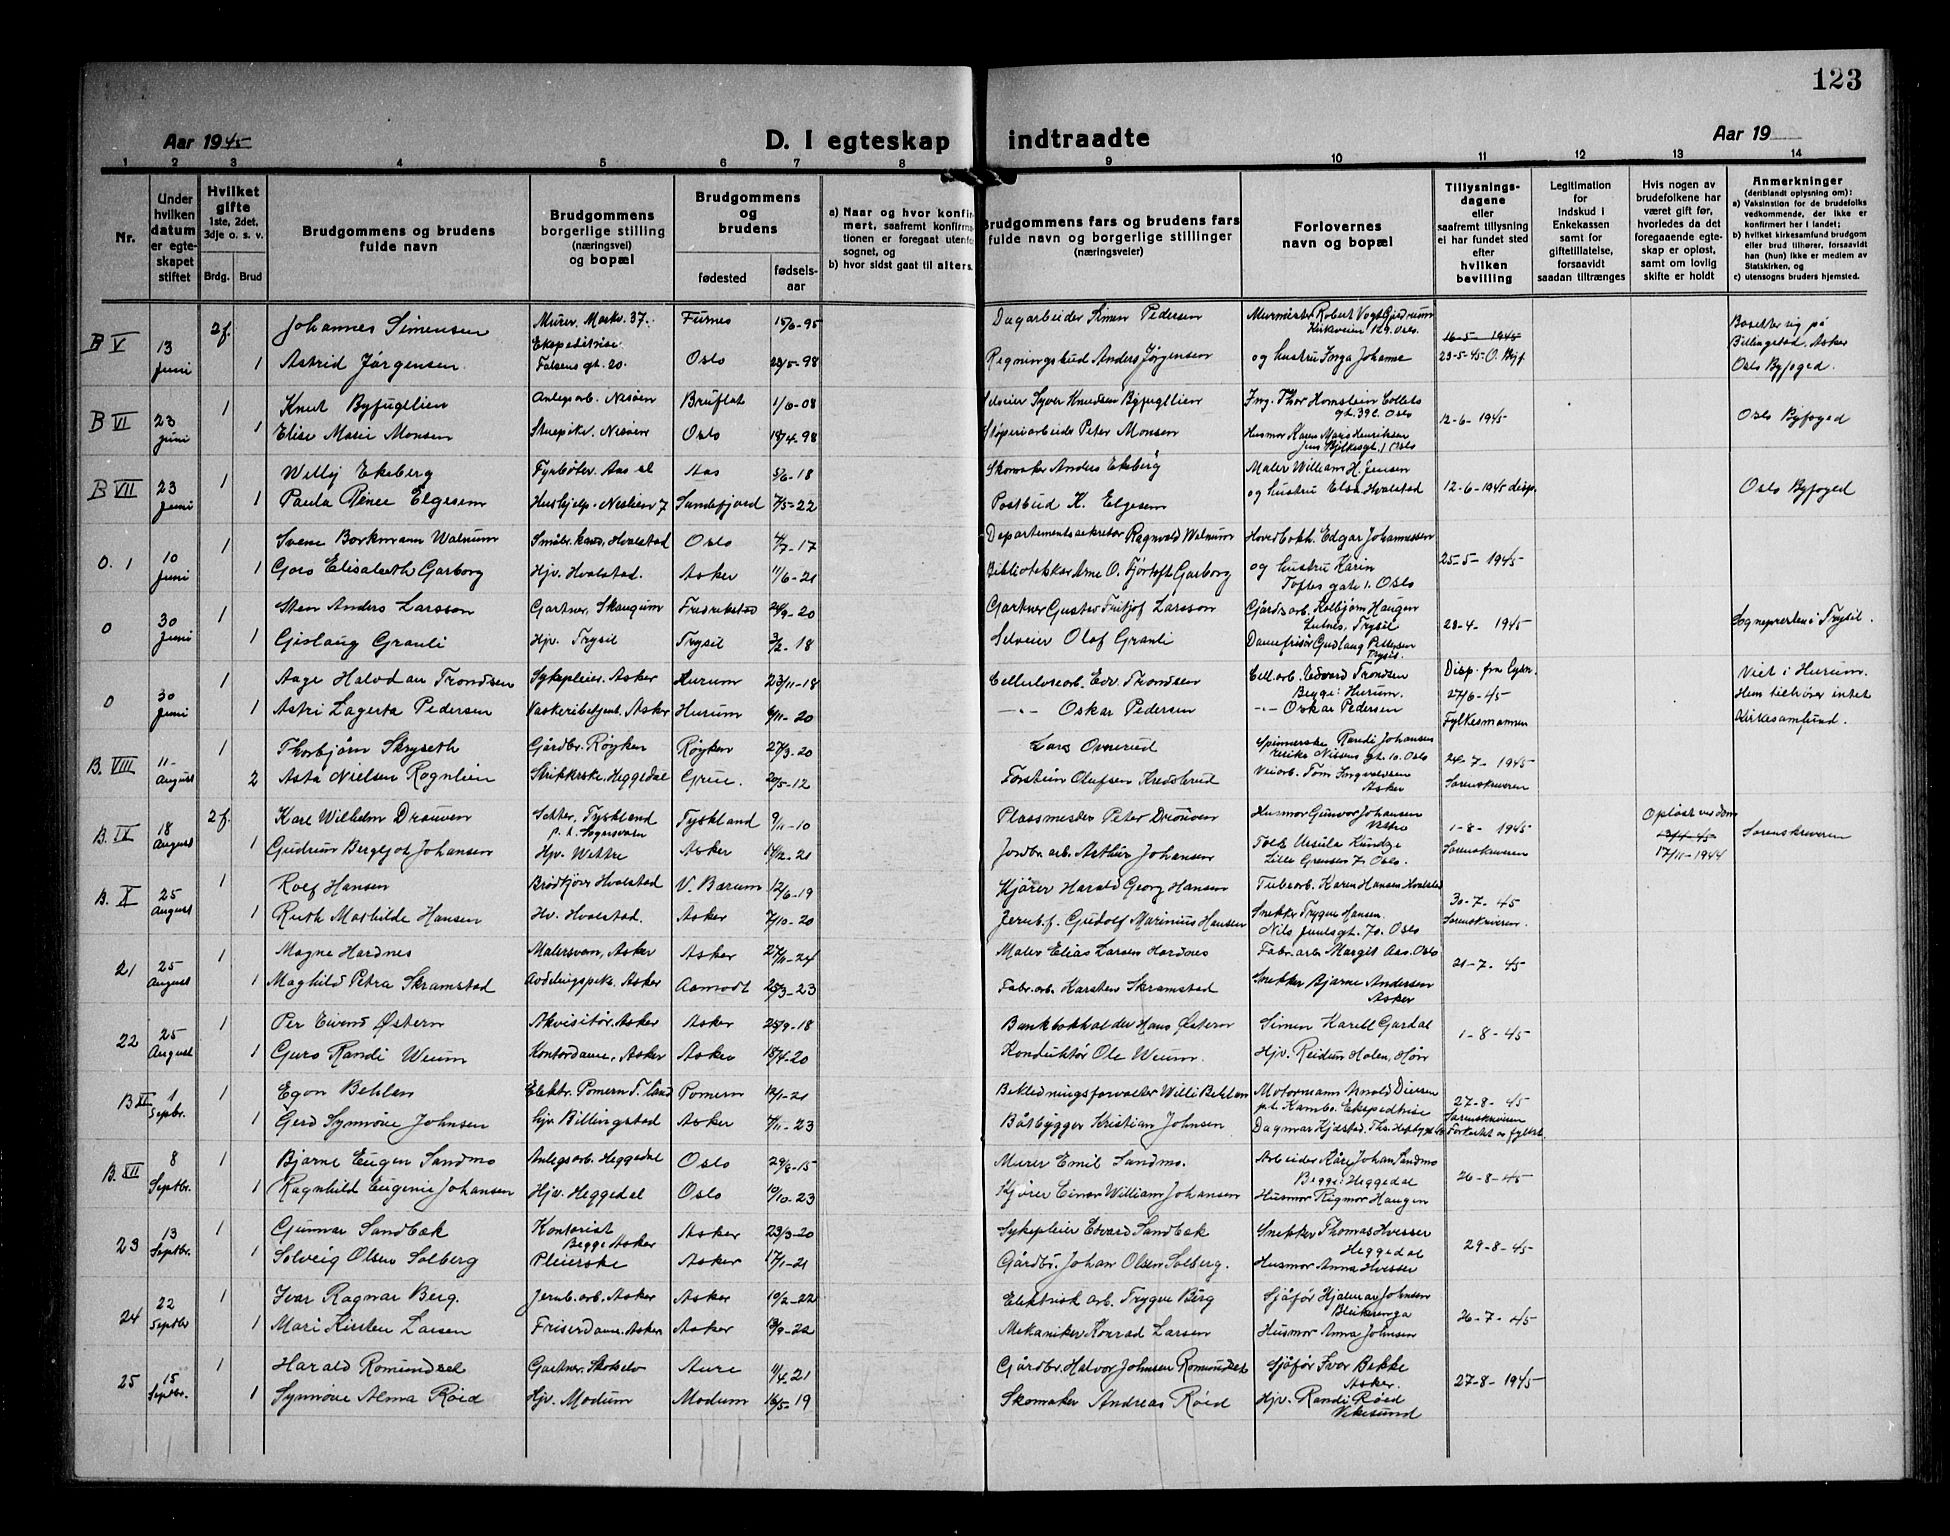 123
Aar 1945
D. I egteskap indtraadte
Aar 19
1 2 3 4 5 6 7 8 9 10 11 12 13 14
Nr.
Under hvilken datum er egteskapet stiftet
Hvilket gifte 1ste, 2det, 3dje o. s. v.
Brdg. Brud
Brudgommens og brudens fulde navn
Brudgommens borgerlige stilling (næringsvei) og bopæl
Brudgommens og brudens
fødested
fødselsaar
a) Naar og hvor konfirmert, saafremt konfirmationen er foregaat utenfor sognet, og
b) hvor sidst gaat til alters.
Brudgommens fars og brudens fars fulde navn og borgerlige stillinger (næringsveier)
Forlovernes navn og bopæl
Tillysningsdagene eller saafremt tillysning ei har fundet sted efter hvilken bevilling
Legitimation for indskud i Enkekassen samt for giftetillatelse, forsaavidt saadan tiltrænges
Hvis nogen av brudefolkene har været gift før, hvorledes da det foregaaende egteskap er opløst, samt om lovlig skifte er holdt
Anmerkninger (deriblandt oplysning om):
a) Vaksination for de brudefolks vedkommende, der ikke er konfirmert her i landet;
b) hvilket kirkesamfund brudgom eller brud tilhører, forsaavidt han (hun) ikke er medlem av Statskirken, og
c) utensogns bruders hjemsted.
B V 13 Juni 2f. Johannes Simensen Murer. Markv. 37. Furnes 15/6-95 Dagarbeider Simen Pedersen Murmester Robert Vogt Gjedrum Kirkeveien Oslo. 16-5-1945 Bosetter sig på Billingstad, Asker
1 Astrid Jørgensen Ekspeditrise. Falsens gt. 20. Oslo 23/5-98 Regningsbud Anders Jørgensen og hustru Inga Johanne 23-5-45 O. Byf Oslo Byfoged.
B VI 23 Juni 1 Knut Byfuglien Anlegsarb. Nesøen Bruflat 1/6-08 Selveier Syver Knudsen Byfuglien Ing. Thor Hornstein Collets gt. 39c. Oslo 12-6-1945 Oslo Byfoged
1 Elise Marie Monsen Stuepike. Nesøen Oslo 18/4-98 Støperiarbeider Peter Monsen Husmor Karen Marie Henriksen Jens Bjelkesgt. 1 Oslo
B VII 23 Juni 1 Willy Ekeberg Fyrbøter. Aas st Aas 5/6-18 Skomaker Anders Ekeberg Maler William H. Jensen 12-6-1945 disp. Oslo Byfoged
1 Paula Renee Elgesem Hushjelp. Neslien 7 Sandefjord 7/5-22 Postbud K. Elgesem og hustru Else Hvalstad
O. 1 10 Juni 1 Svene Borkmann Walnum Småbr. kand. Hvalstad Oslo 4/7-17 Departementssekretær Ragnvald Walnum Hovedbokh. Edgar Johannessen 25-5-1945
1 Goro Elisabeth Garborg Hjv. Hvalstad. Asker 11/6-21 Bibliotekar Arne O. Fjørtoft Garborg og hustru Karin Toftes gate 1. Oslo
O 30 Juni 1 Sten Anders Larsson Gartner. Skaugum Fredrikstad 24/9-20 Gartner Gustav Fritjof Larsson Gårdsarb. Kolbjørn Haugen Lutnes, Trysil 28-4-1945 Sogneprester i Trysil.
1 Gislaug Granli Hjv. Trysil Trysil 3/2-18 Selveier Olaf Granli Damefrisør Gudlaug Pettersen Trysil.
O 30 Juni 1 Aage Halvdan Trondsen Sykepleier. Asker Hurum 23/11-18 Cellulosearb. Edv. Trondsen Cell. arb. Edvard Trondsen Begge: Hurum. Disp. fra Lysn. 27/6-45 Viet i Hurum.
1 Astri Lagerta Pedersen Vaskeribetjent. Asker Hurum 6/11-20 -"- Oskar Pedersen -"- Oskar Pedersen Fylkesmannen Hem tilhører intet Kirkesamfund.
B. VIII 11- August 1 Thorbjørn Skryseth Gårdbr. Røyken Røyken 27/3-20 Lars Overud Spinnerske Randi Johansen gt. 10. Oslo 24-7-1945
2 Asta Nielsen Rognlien Strikkerske. Heggedal Grue. 20/5-12 Torstein Olufsen Kredsbrud Veiarb. Tom Ingvaldsen Asker Sorenskriveren
B. IX 18 August 2f. Karl Wilhelm Drouven Setter. Tyskland p. t. Sognsvann Tyskland 9/11-10 Plassmester Peter Drouven Husmor Gunvor Johansen 1-8-1945 Opløst ved dom 17/11-1944 Sorenskriveren
1 Gudrun Bergljot Johansen Hjv. Wettre Asker 14/2-21 Jordbr. arb. Arthur Johansen Tolk Ursula Kundge Lille Grensen 7. Oslo. Sorenskriveren
B. X 25 August 1 Rolf Hansen Brødkjører Hvalstad V. Bærum 12/6-19 Kjører Harald Georg Hansen Tubearb. Karen Hansen Hvalstad 30-7-45
1 Ruth Mathilde Hansen Hv. Hvalstad. Asker 7/10-20 Jernb.f. Gudolf Marinius Hansen Snekker Trygve Hansen. Nils Juulsgt. 70. Oslo Sorenskriveren.
21 25 August 1 Magne Hardnes Malersvenn, Asker Asker 27/11-24 Maler Elias Larsen Hardnes Fabr. arb. Margit Aas. Oslo 21-7-45
1 Maghild Petra Skramstad Avdelingspike, Asker Aamodt 25/3-23 Fabr. arb. Karsten Skramstad Snekker Bjarne Andersen Asker
22 25 August 1 Per Eivend Østern Akvisitør. Asker Asker 25/9-18 Bankbokholder Hans Østern Simen Karell Gardal 1-8-45
1 Guro Randi Weum Kontordame, Asker Asker 15/4-20 Konduktør Ole Weum. Hjv. Reidun Holen, Høn
B XI 1 Septbr. 1 Egon Behlen Elektr. Pomern T. land Pomern 12/1-21 Bekledningsforvalter Willi Behlen Motormann Arnold Diesen p.t. Kambo. Ekspeditrise 27-8-45
1 Gerd Synnøve Johnsen Hjv Billingstad Asker 7/11-23 Båtbygger Kristian Johnsen Dagmar Kjølstad. Sorenskriveren
B. XII 8 Septbr. 1 Bjarne Eugen Sandmo Anlegsarb. Heggedal Oslo 29/8-15 Murer Emil Sandmo. Arbeider Kåre Johan Sandmo Begge: Heggedal 26-8-45
1 Ragnhild Eugenie Johansen Hjv. Heggedal Oslo 10/10-23 Kjører Einar William Johansen Husmor Rigmor Haugen
23 13 Septbr. 1 Gunnar Sandbæk Kontorist Begge Asker Asker 23/3-20 Sykepleier Edvard Sandbæk Snekker Thomas Hvesser Heggedal 29-8-45
1 Solveig Olsen Solberg Pleierske Asker 17/1-21 Gårdbr. Johan Olsen Solberg. Husmor Anna Hvesser
24 22 Septbr 1 Ivar Ragnar Berg. Jernb. arb. Asker Asker 10/2-22 Elektrisk arb. Trygve Berg Sjåfør Hjalmar Johnsen Bleikerenga 26-7-45
1 Mari Kirsten Larsen Friserdame. Asker Asker 13/9-22 Mekaniker Konrad Larsen Husmor Anna Johnsen
25 15 Septbr. 1 Harald Romundset Gartner. Skokelv Aure 11/4-21 Gårdbr. Halvor Johnsen Romundset Sjåfør Ivar Bekke Asker. 27-8-1945
1 Synnøve Alma Røed Hjv. Modum Modum 16/5-19 Skomaker Andreas Røed Hjv. Randi Røed Vikesund